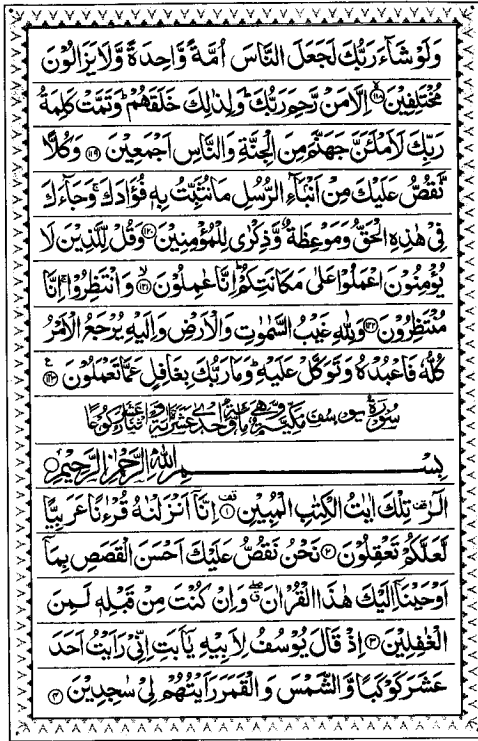 وَلَوْ شَآءَ رَبُّكَ لَجَعَلَ النَّاسَ اُمَّةً وَّاحِدَةً وَّلَا يَزَالُوْنَ
مُخْتَلِفِيْنَ ۙ۝۱۱۸ اِلَّا مَنْ رَّحِمَ رَبُّكَ ؕ وَلِذٰلِكَ خَلَقَهُمْ ؕ وَتَمَّتْ كَلِمَةُ
رَبِّكَ لَاَمْلَـَٔنَّ جَهَنَّمَ مِنَ الْجِنَّةِ وَالنَّاسِ اَجْمَعِيْنَ ۝۱۱۹ وَكُلًّا
نَّقُصُّ عَلَيْكَ مِنْ اَنْۢبَآءِ الرُّسُلِ مَا نُثَبِّتُ بِهٖ فُؤَادَكَ ۚ وَجَآءَكَ
فِيْ هٰذِهِ الْحَقُّ وَمَوْعِظَةٌ وَّذِكْرٰى لِلْمُؤْمِنِيْنَ ۝۱۲۰ وَقُلْ لِّلَّذِيْنَ لَا
يُؤْمِنُوْنَ اعْمَلُوْا عَلٰى مَكَانَتِكُمْ ؕ اِنَّا عٰمِلُوْنَ ۙ۝۱۲۱ وَانْتَظِرُوْا ۚ اِنَّا
مُنْتَظِرُوْنَ ۝۱۲۲ وَلِلّٰهِ غَيْبُ السَّمٰوٰتِ وَالْاَرْضِ وَاِلَيْهِ يُرْجَعُ الْاَمْرُ
كُلُّهٗ فَاعْبُدْهُ وَتَوَكَّلْ عَلَيْهِ ؕ وَمَا رَبُّكَ بِغَافِلٍ عَمَّا تَعْمَلُوْنَ ۝۱۲۳ ع
سُوْرَةُ يُوْسُفَ مَكِّيَّةٌ وَّهِيَ مِائَةٌ وَّاِحْدٰى عَشْرَةَ اٰيَةً وَّاثْنَا عَشَرَ رُكُوْعًا
بِسْمِ اللّٰهِ الرَّحْمٰنِ الرَّحِيْمِ ۝
الٓرٰ ۫ تِلْكَ اٰيٰتُ الْكِتٰبِ الْمُبِيْنِ ۝۱ اِنَّآ اَنْزَلْنٰهُ قُرْءٰنًا عَرَبِيًّا
لَّعَلَّكُمْ تَعْقِلُوْنَ ۝۲ نَحْنُ نَقُصُّ عَلَيْكَ اَحْسَنَ الْقَصَصِ بِمَآ
اَوْحَيْنَآ اِلَيْكَ هٰذَا الْقُرْاٰنَ ۖ وَاِنْ كُنْتَ مِنْ قَبْلِهٖ لَمِنَ
الْغٰفِلِيْنَ ۝۳ اِذْ قَالَ يُوْسُفُ لِاَبِيْهِ يٰٓاَبَتِ اِنِّيْ رَاَيْتُ اَحَدَ
عَشَرَ كَوْكَبًا وَّالشَّمْسَ وَالْقَمَرَ رَاَيْتُهُمْ لِيْ سٰجِدِيْنَ ۝۴